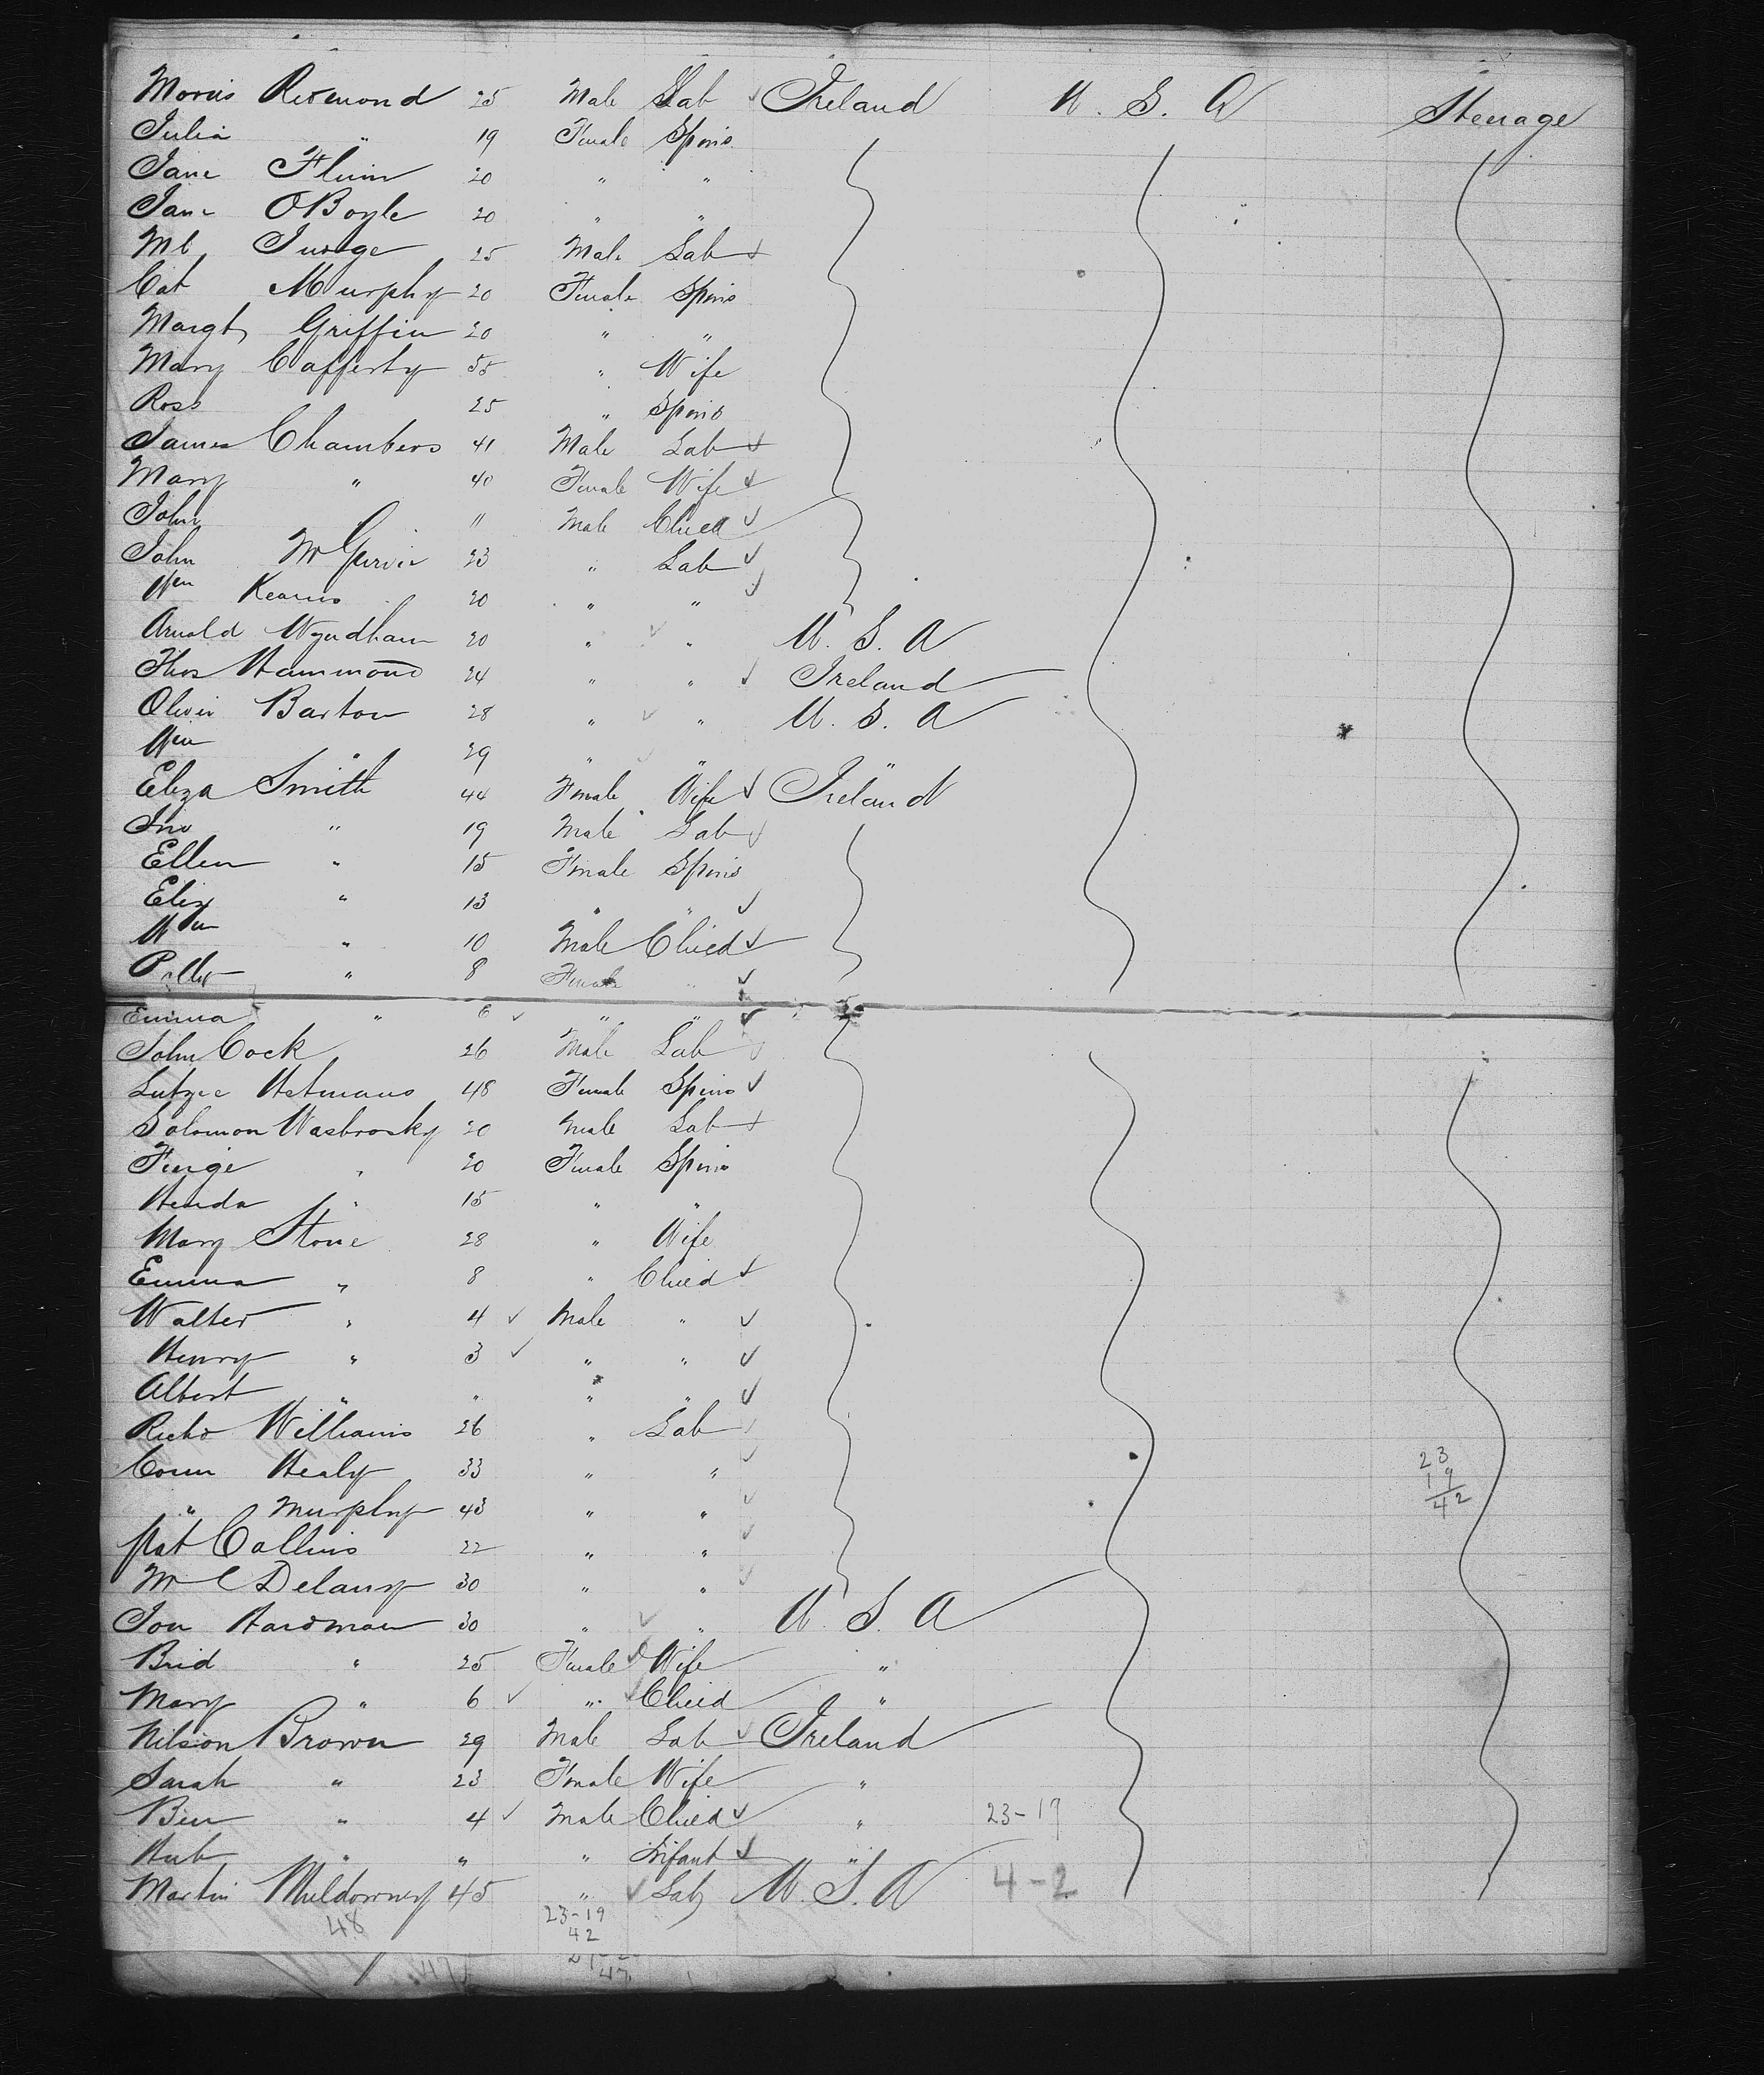 Morris Redmond 25 Male Lab Ireland U. S. A Steerage
Julia " 19 Female Spins
Jane Flinn 20 " "
Jane O'Boyle 20 " "
Ml Judge 25 Male Lab
Cat Murphy 20 Female Spins
Margt Griffin 20 " "
Mary Cafferty 55 " Wife
Ross 25 " Spins
James Chambers 41 Male Lab
Mary " 40 Female Wife
John " 11 Male Child
John 23 " Lab
Wm Kearns 20 " "
Arnold Wyndham 20 " " U. S. A
Thos Hammond 24 " " Ireland
Oliver Barton 28 " " U. S. A
Wm " 29 " " "
Eliza Smith 44 Female Wife Ireland
Jno " 19 Male Lab
Ellen " 15 Female Spins
Eliz " 13 " "
Wm " 10 Male Child
" 8 Female "
Emma " 6 " "
John Cock 26 Male Lab
Hetmans 48 Female Spins
Solomon Wasbrosky 20 Male Lab
Feige " 20 Female Spins
Henda " 15 " "
Mary Stone 28 " Wife
Emma " 8 " Child
Walter " 4 Male "
Henry " 3 " "
Albert " " " "
Richd Williams 26 " Lab
Corn Healy 33 " "
" Murphy 43 " "
Pat Collins 22 " "
Delany 30 " "
Jon Hardman 30 " " U. S. A
Brid " 25 Female Wife "
Mary " 6 " Child "
Nilson Brown 29 Male Lab Ireland
Sarah " 23 Female Wife "
Ben " 4 Male Child "
Hub " " " Infant "
Martin Muldowney 45 " Lab U. S. A
23
19
42
23-19
4-2
48
23-19
42
47